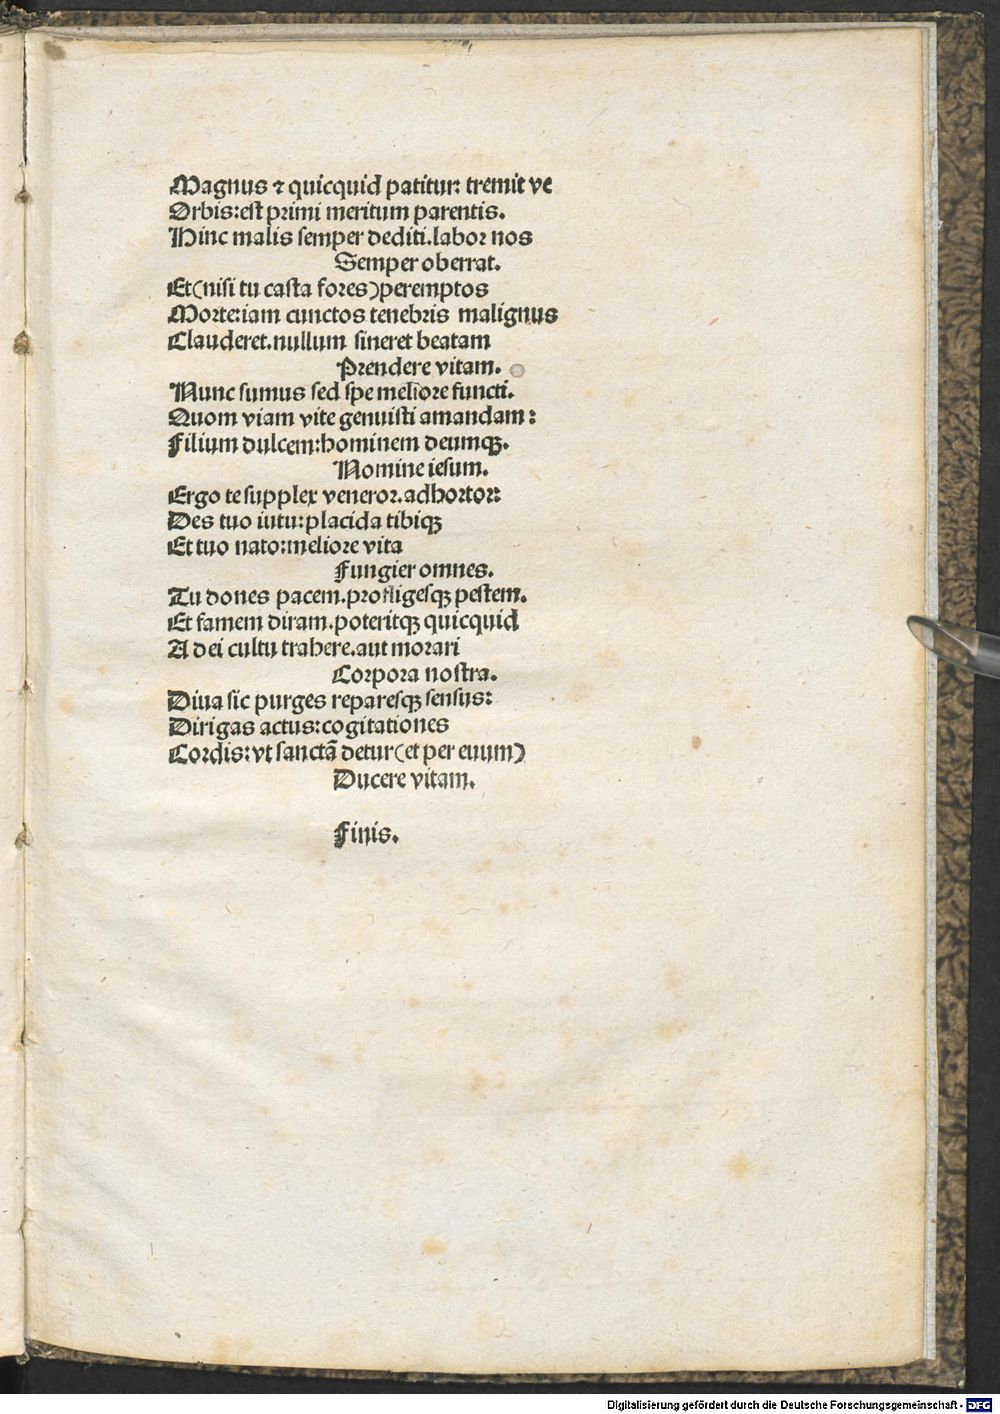 Magnus ⁊ quicquid patitur: tremit ve
Orbis: est primi meritum parentis.
Hinc malis semper dediti. labor nos
Semper oberrat.
Et (nisi tu casta fores) peremptos
Morte: iam cunctos tenebris malignus
Clauderet. nullum sineret beatam
Prendere vitam.
Nunc sumus sed spe meliore functi.
Quom viam vite genuisti amandam:
Filium dulcem: hominem deumqꝫ.
Nomine iesum.
Ergo te supplex veneror. adhortor:
Des tuo iutu: placida tibiqꝫ
Et tuo nato: meliore vita
Fungier omnes.
Tu dones pacem. profligesqꝫ pestem.
Et famem diram. poteritqꝫ quicquid
A dei cultu trahere. aut morari
Corpora nostra.
Diua sic purges reparesqꝫ sensus:
Dirigas actus: cogitationes
Cordis: vt sanctã detur (et per euum)
Ducere vitam.
Finis.
Digitalisierung gefördert durch die Deutsche Forschungsgemeinschaft - DFG